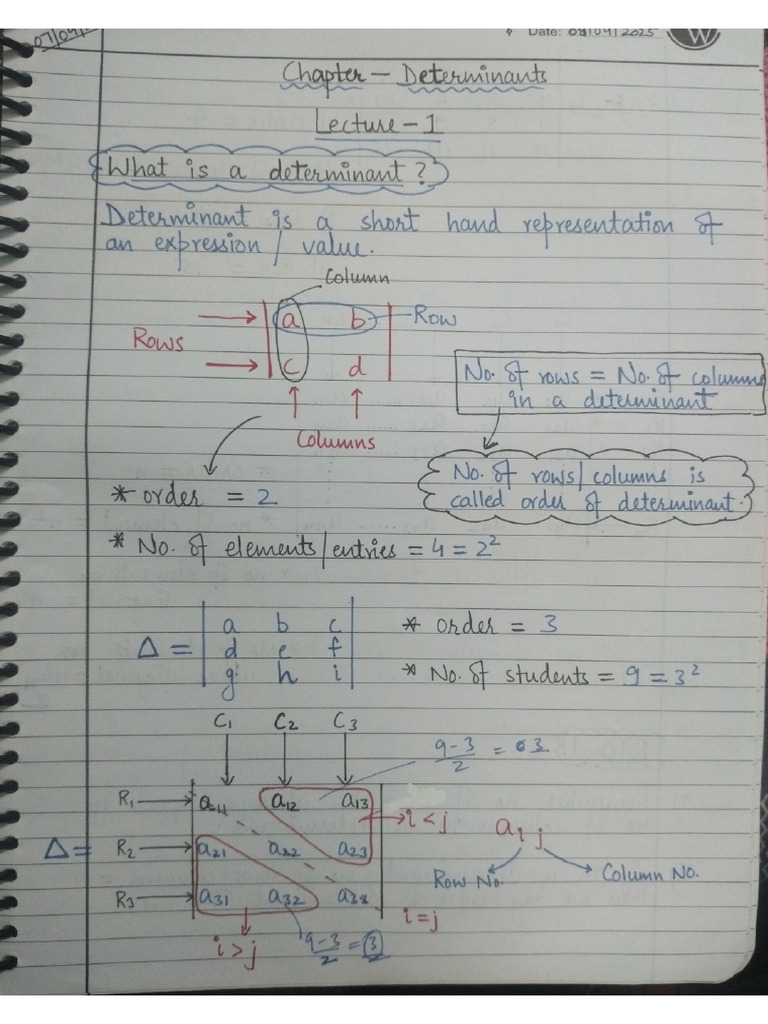 07/04/
Date: 08/04/2025
Chapter - Determinants
Lecture - 1
What is a determinant?
Determinant is a short hand representation of
an expression/ value.
Column
a b Row
Rows
c d
Columns
No. of rows = No. of columns
in a determinant
No. of rows/ columns is
called order of determinant.
* order = 2
* No. of elements/entries = 4 = 2²
Δ = | a b c |
| d e f |
| g h i |
* order = 3
* No. of students = 9 = 3²
C₁ C₂ C₃
9-3/2 = 3
R₁ a₁₁ a₁₂ a₁₃
i < j
aᵢⱼ
Δ = R₂ a₂₁ a₂₂ a₂₃
Row No. Column No.
R₃ a₃₁ a₃₂ a₃₃
i = j
i > j
9-3/2 = 3